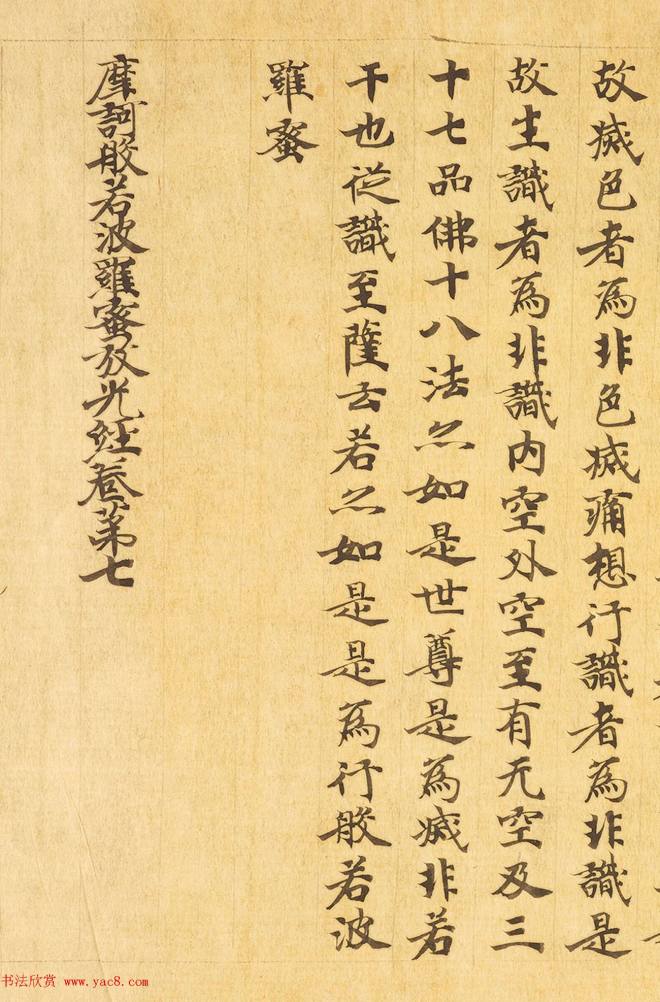 故滅色者為非色滅痛想行識者為非識是
故生識者為非識内空外空至有无空及三
十七品佛十八法亦如是世尊是為滅非若
干也從識至薩云若亦如是是為行般若波
羅蜜
摩訶般若波羅蜜放光經卷第七
书法欣赏 www.yac8.com